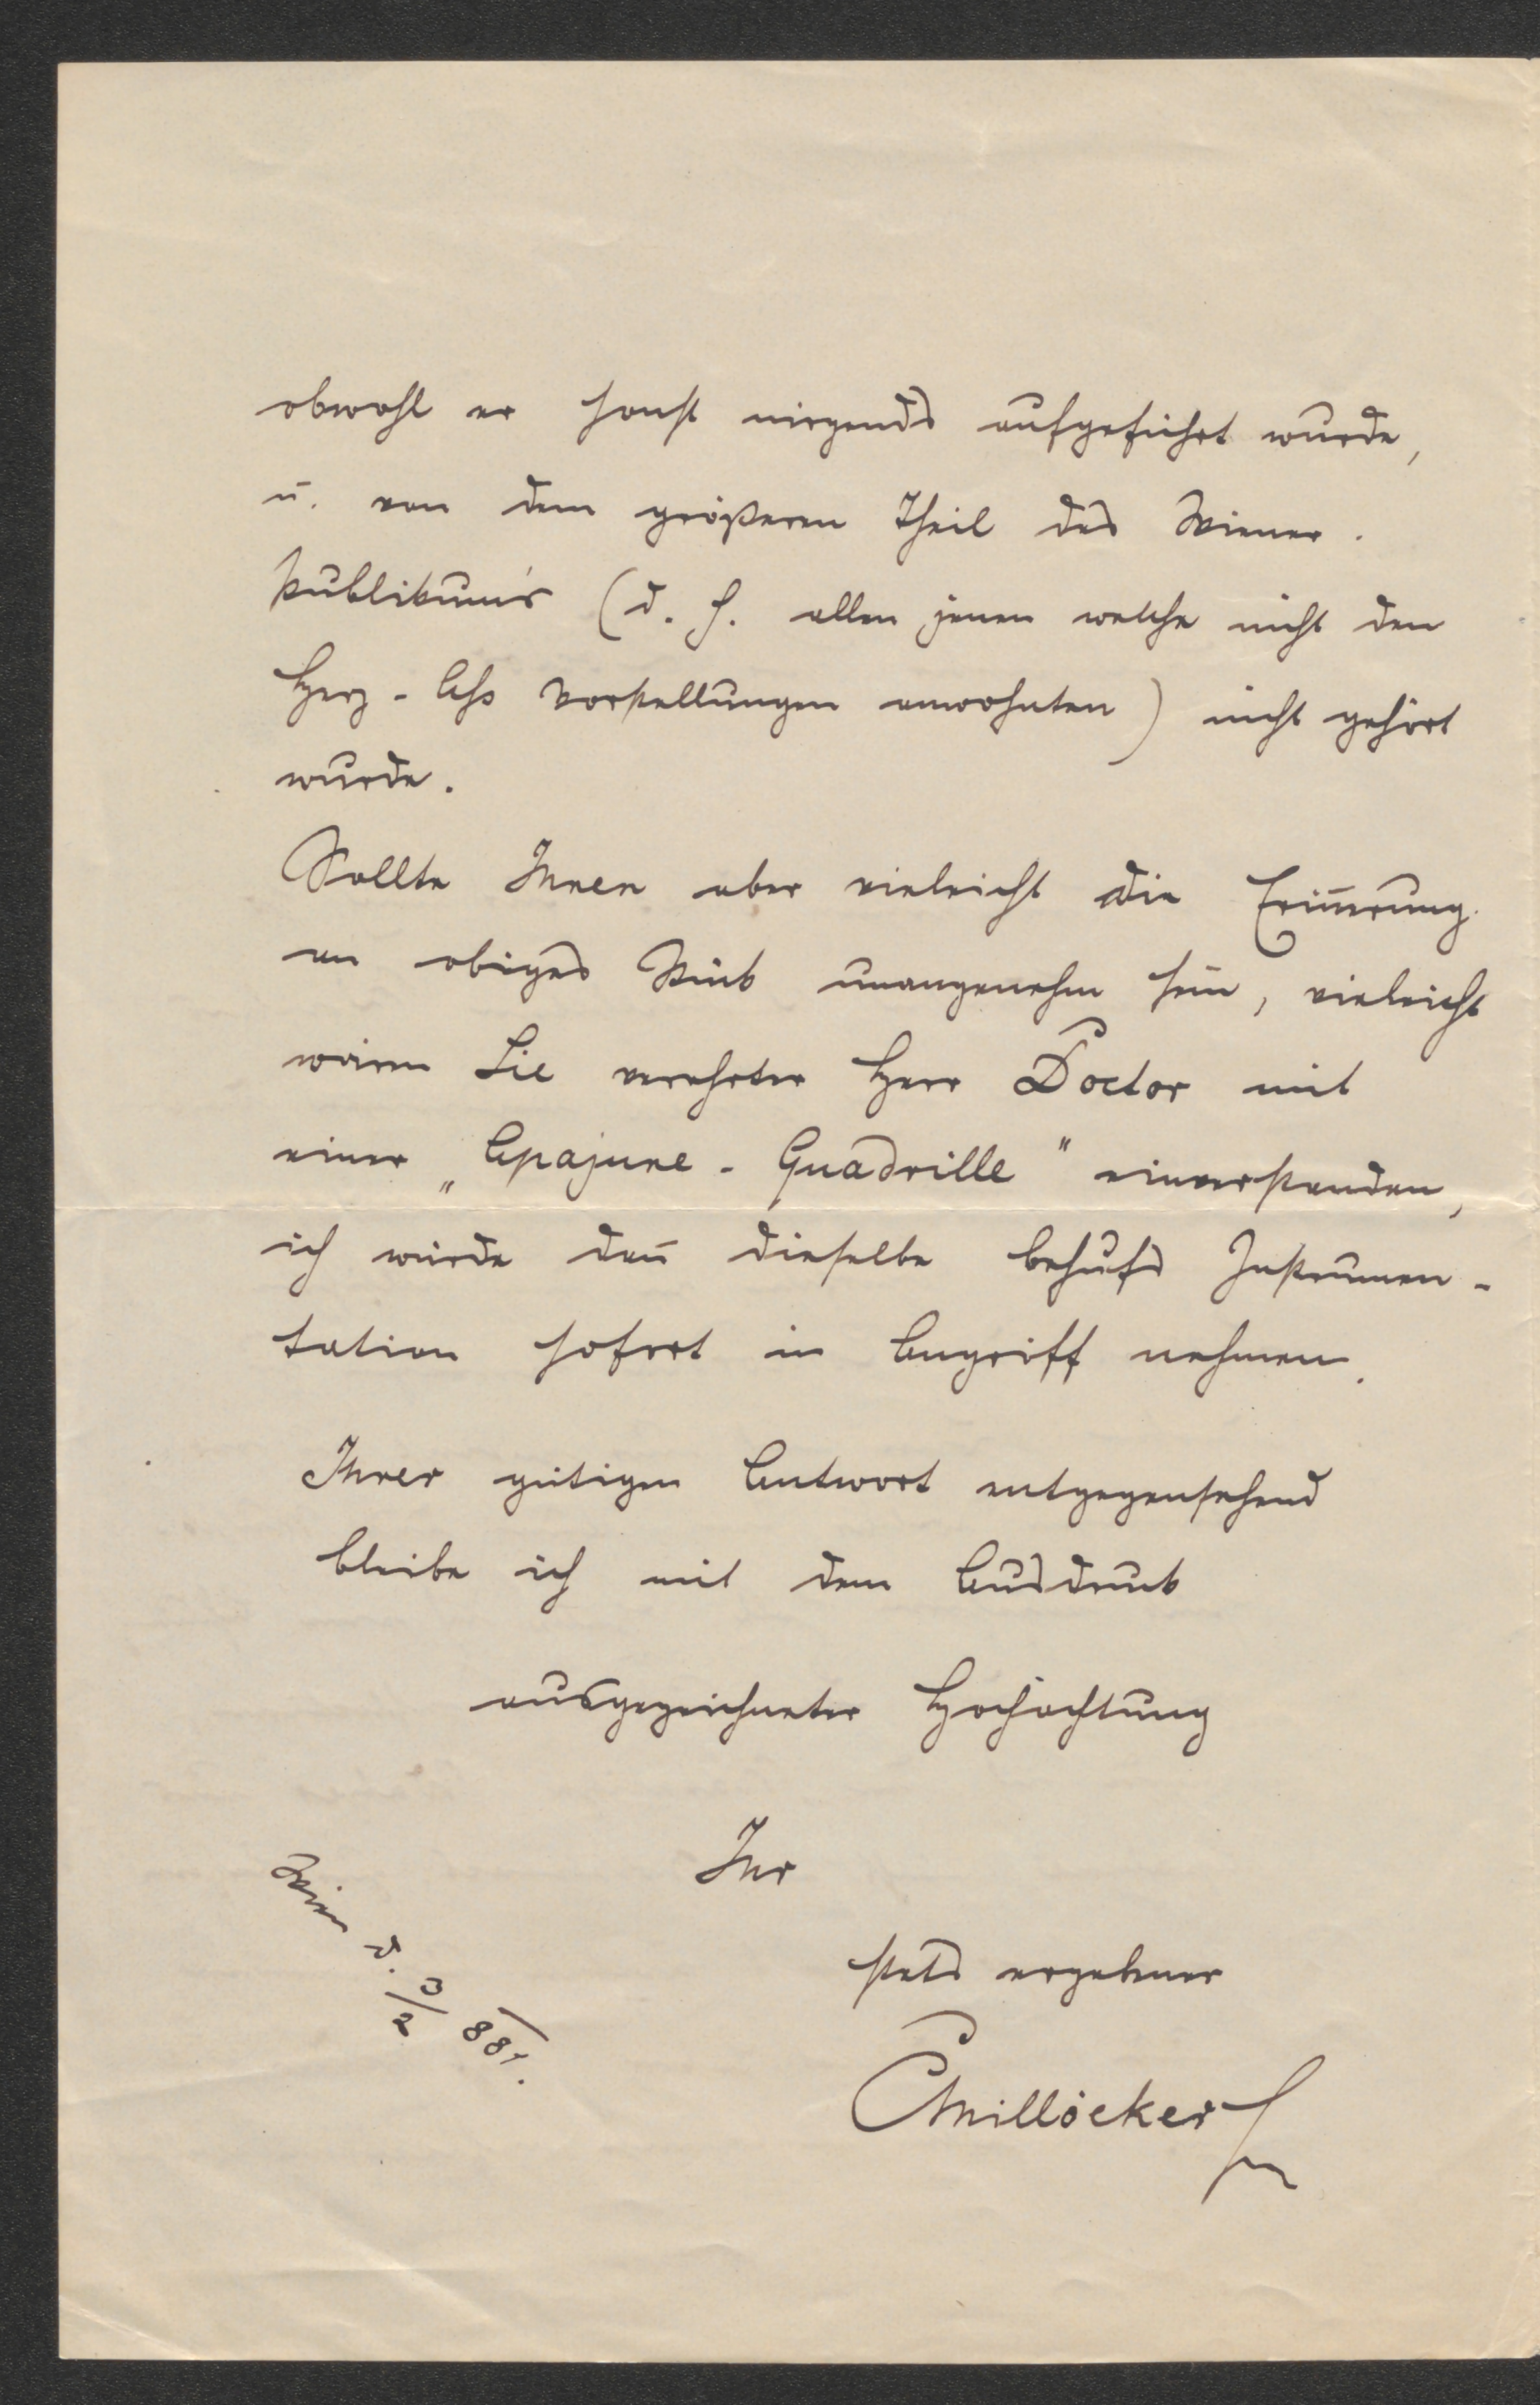 obwohl er sonst nirgends aufgeführt wurde,
u. von dem größeren Theil des Wiener
Publikum's (d. h. allen jenen welche nicht den
Herz-Aß Vorstellungen anwohnten) nicht gehört
wurde.
Sollte Ihnen aber vieleicht die Erin̅erung
an obiges Stück unangenehm sein, vieleicht
wären Sie verehrter Herr Doctor mit
einer „Apajune-Quadrille" einverstanden,
ich würde dan̅ dieselbe behufs Instrumen-
tation sofort in Angriff nehmen.
Ihrer gütigen Antwort entgegensehend
bleibe ich mit dem Ausdruck
ausgezeichneter Hochachtung
Ihr
stets ergebener
CMillöcker
Wien d. 3/2 881.